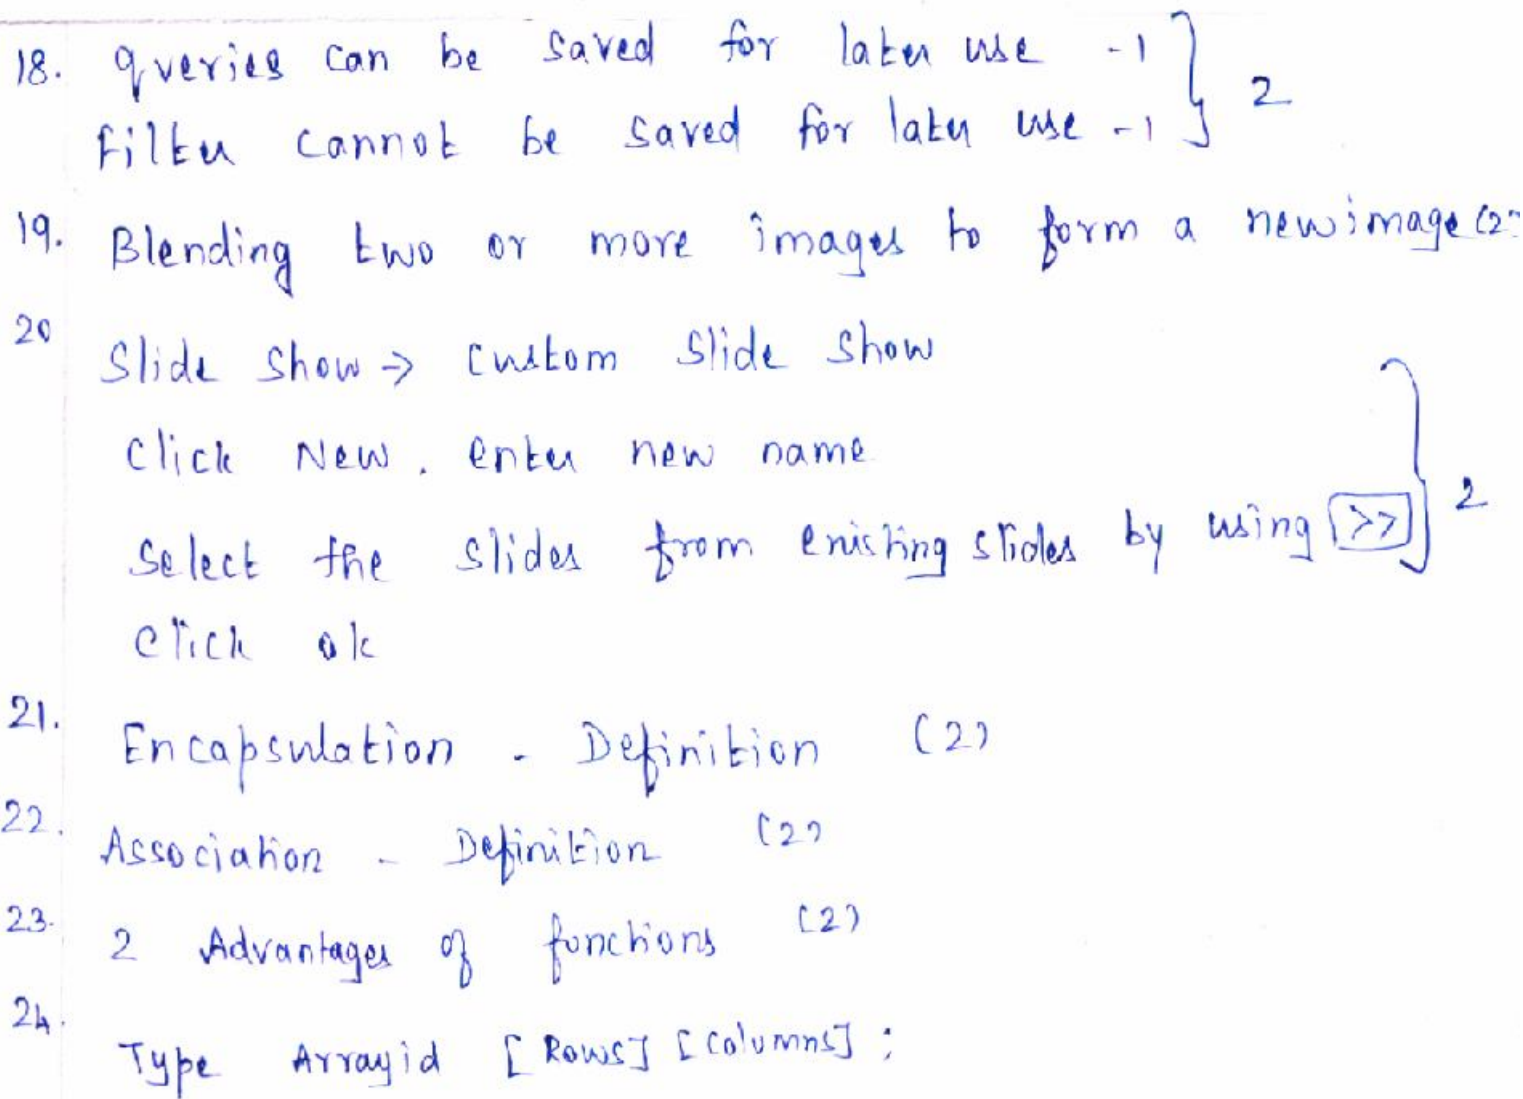 18. queries can be saved for later use -1 } 2
Filter cannot be saved for later use -1
19. Blending two or more images to form a new image (2)
20 Slide Show → Custom Slide Show
Click New. enter new name
Select the slides from existing slides by using [>>] } 2
Click ok
21. Encapsulation - Definition (2)
22. Association - Definition (2)
23. 2 Advantages of functions (2)
24. Type Arrayid [Rows] [Columns];